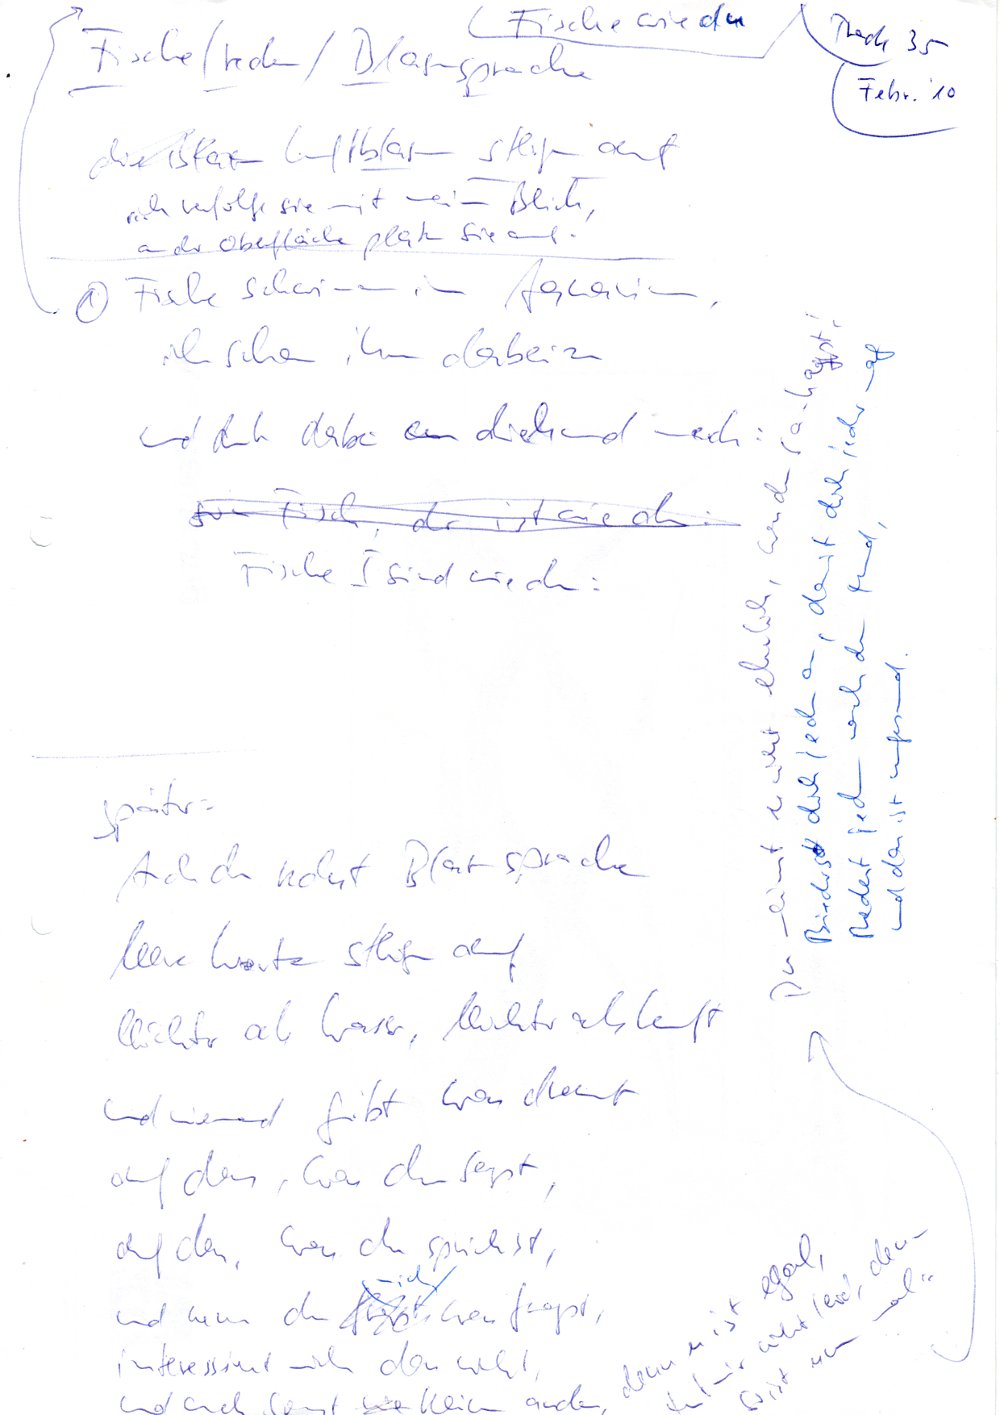 Fische wie du
Track 35
Febr. '10
Fische / reden / Blasensprache
die Blasen Luftblasen steigen auf
ich verfolge sie mit meinem Blick,
an der Oberfläche platzen sie auf.
① Fische schwimmen im Aquarium,
ich schau ihnen dabei zu
und denk dabei an dich und mich:
Fisch, der ist wie du:
Fische sind wie du:
später:
Auch du redest Blasensprache
leere Worte steigen auf
leichter als Wasser, leichter als Luft
und niemand gibt was drauf
auf das, was du sagst,
auf das, was du sprichst,
und wenn du mich was fragst,
interessiert mich das nicht,
und auch sonst kein andern,
denn es ist egal,
tut mir nicht leid, denn
so ist nun mal"
Du meinst es nicht ehrlich, wenn du ja sagst!
Biederst dich jedem an, damit dich jeder mag
Redest jedem nach dem Mund,
und das ist ungesund.